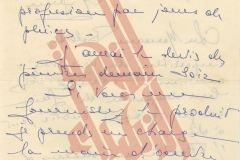 profession par jours de
pluies.
J'aurai le devis des
peintres demain soir
Si vous me
fournissez le produit
je prends en charge
la main d'oeuvre